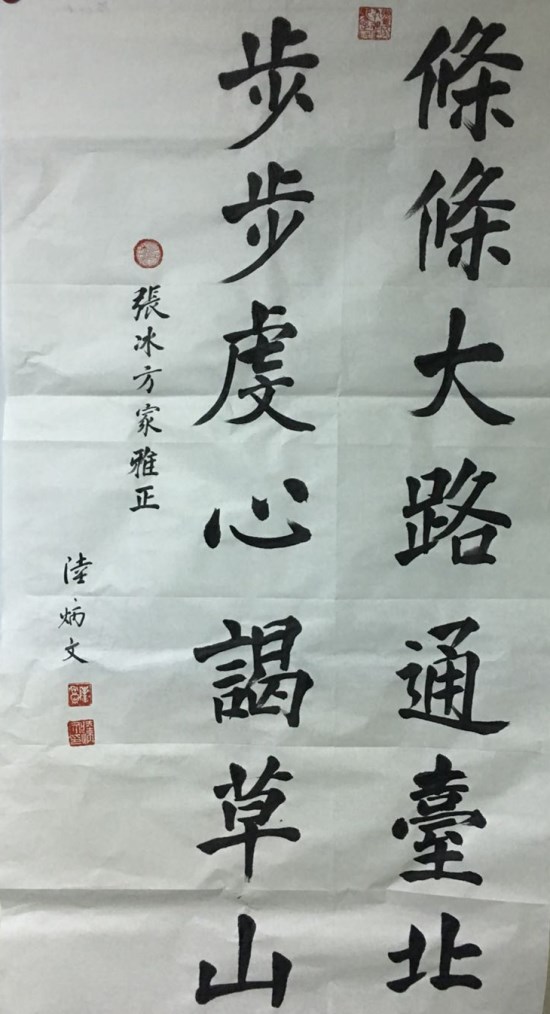 條條大路通臺北
步步虔心謁草山
張冰方家雅正
陸炳文